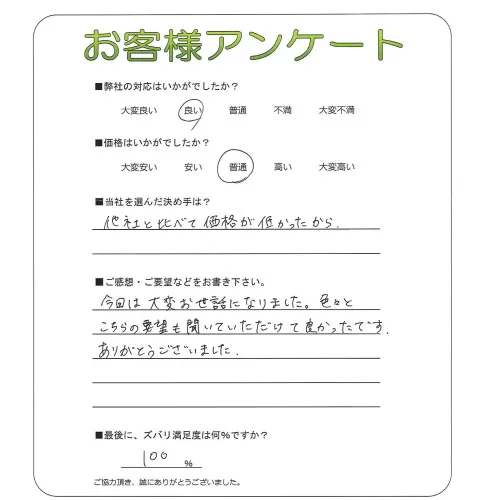 お客様アンケート
■弊社の対応はいかがでしたか？
大変良い 良い 普通 不満 大変不満
■価格はいかがでしたか？
大変安い 安い 普通 高い 大変高い
■当社を選んだ決め手は？
他社と比べて価格が低かったから.
■ご感想・ご要望などをお書き下さい。
今回は大変お世話になりました。色々と
こちらの要望も聞いていただけて良かったです.
ありがとうございました.
■最後に、ズバリ満足度は何％ですか？
100 ％
ご協力頂き、誠にありがとうございました。